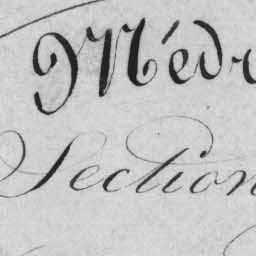 Médr
Section